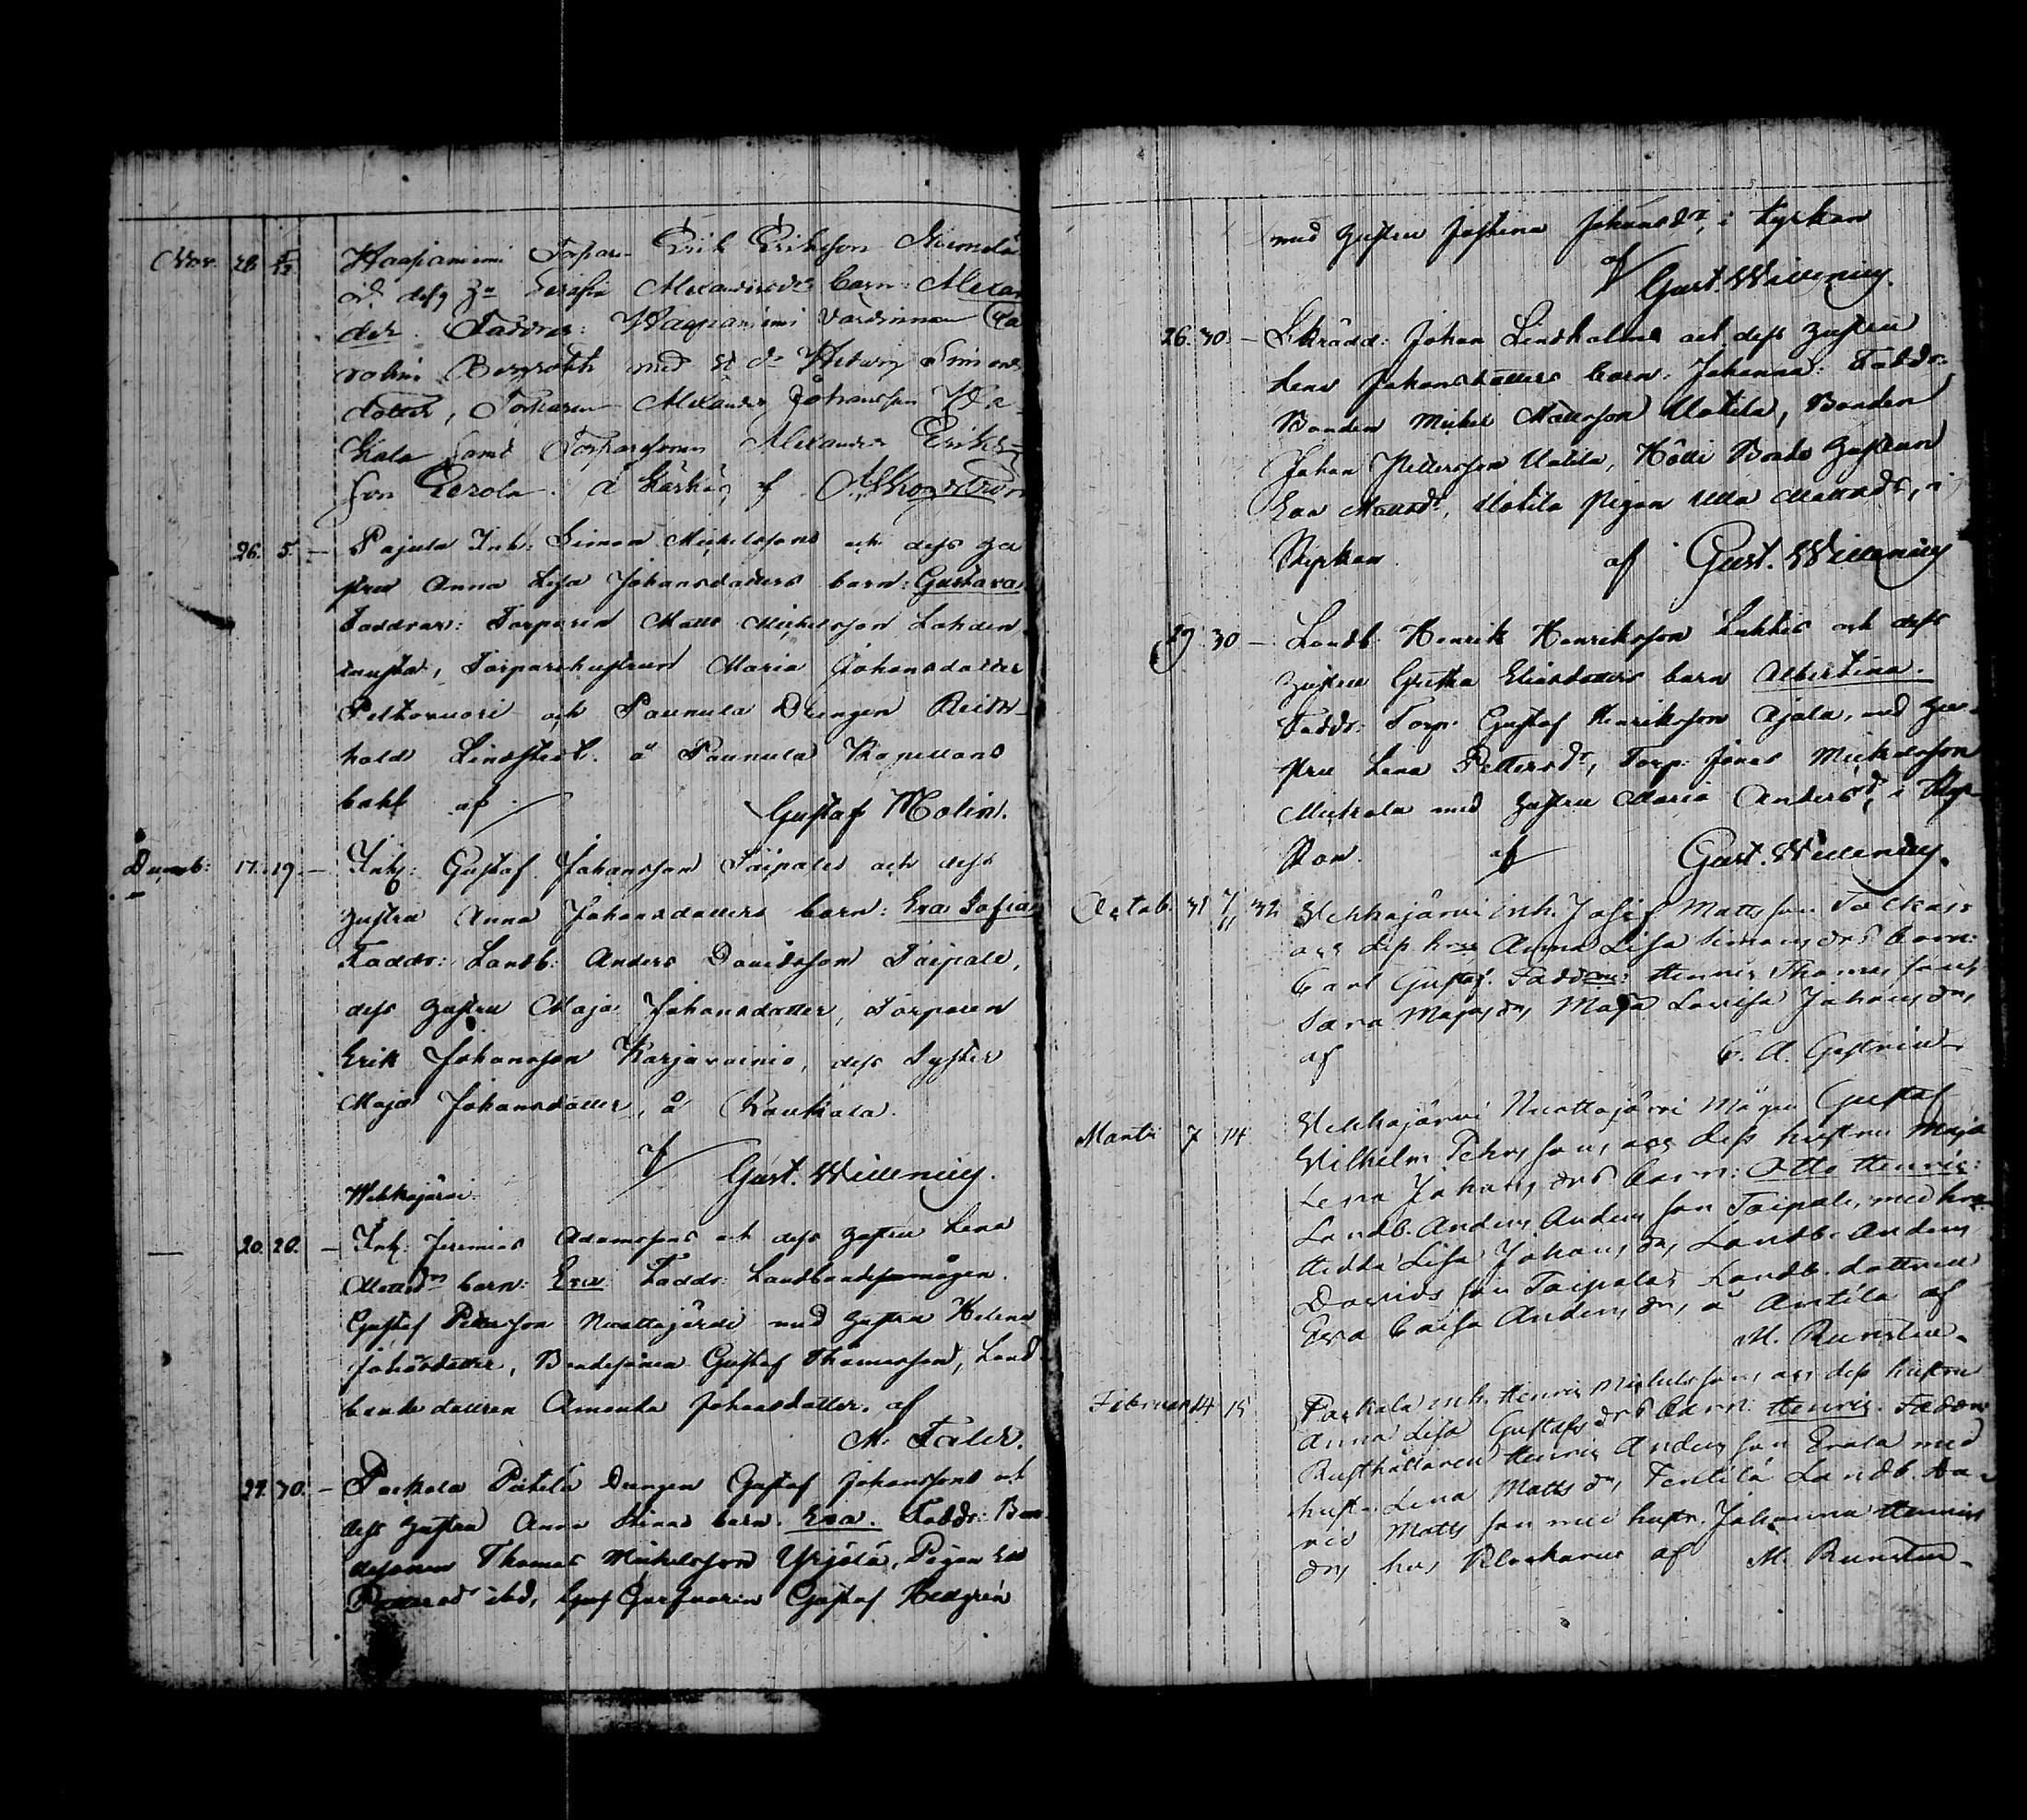 Nov. 28 5/12. Haapaniemi Torpar. Erik Eriksson
och dess Hu Serafia Alexandersdrs barn: Alexan
der. Faddrar: Haapaniemi Värdinnan Ca
rolin med Hedvig Simons
dotter, Torparen Alexander Johansson
kala samt Torparsonen Alexander Eriks-
son Perola. å Kärkis af
26. 5. – Pajula Inh: Simon Michelssons och dess hu
stru Anna Lisa Johansdotters barn: Gustava.
Faddrar: Torparen Matts Michelsson Lahden
, Torparehustrun Maria Johansdotter
Peltovuori och Paunula Drengen Rein-
hold Lindstedt. å Paunula Kapellans
bohl af Gustaf Molin.
Decemb: 17. 19. – Inh: Gustaf Johansson Taipales och dess
hustru Anna Johansdotters barn: Eva Sofia
Faddr: Landb: Anders Davidsson Taipale,
dess hustru Maja Johansdotter, Torparen
Erik Johansson Karjavainio, dess Syster
Maja Johansdotter, å Raukala.
af Gust. Willenius.
Wehkajärvi
— 20. 20. – Inh: Jeremias Adamssons och dess hustru Lena
Mattsdrs barn: Eva Faddr: Landbondemågen
Gustaf Pettersson Nuottajärvi med hustru Helena
Johansdotter, Bondesonen Gustaf Thomasson, Land
bonde dottren Amanda Johansdotter. af
M. Faler.
27. 30. – Packala Pätilä Drengen Gustaf Johanssons och
dess hustru Anna Stinas barn. Eva. Faddr: Bon
desonen Thomas Michelsson Yrjölä, Pigan Eva
ibd, Gustaf Hedgren
med hustru Justina Johansdr, i Kyrkan
af Gust. Willenius.
26. 30. – Skrädd: Johan Lindholms och dess hustru
Lena Johansdotters barn: Johanna: Faddr:
Bonden Michel Mattsson Uotila, Bonden
Johan Pettersson Uotila, Bonde hustrun
Eva Mattsdr, Uotila Pigan Ulla Mattsdr, i
Kyrkan. af Gust. Willenius
29 30 – Landb. Henrik Henriksson Lukkis och dess
hustru Gretha Eliasdotters barn Albertina.
Faddr: Torp. Gustaf Henriksson Ajala, med hu-
stru Lena Pettersdr, Torp. Jonas Michelsson
Mickola med hustru Maria Andersdr, i Kyr-
kan. af Gust. Willenius.
Octob. 31 7/11 32 Wehkajärvi inh. Josef Mattsson
och dess hru Anna Lisa Simonsdrs barn:
Carl Gustaf. Faddrar: Henric Thomas son,
Sara Majasdr, Maja Lovisa Johansdr,
af C. A. Gestrin
Martii 7 14 Wehkajärvi Nuottajärvi Mågen Gustaf
Wilhelm Pehrssons och dess hustru Maja
Lena Johansdrs barn: Otto Henric:
Landb. Anders Anders son Taipale, med hru
Hedda Lisa Johansdr, Landb. Anders
Davids son Taipales Landb. dottren
Eva Caisa Andersdr, å Antila af
M. Runsten.
Februari 14 15 Packala inh. Henric Michelssons och dess hustru
Anna Lisa Gustafsdrs barn: Henric. Faddrar
Rusthållaren Henric Anders son Erola med
hustr. Lena Mattsdr, Landb. Da-
vid Matts son med hustr. Johanna Henrics
dr, hos Klockarne af M. Runsten.